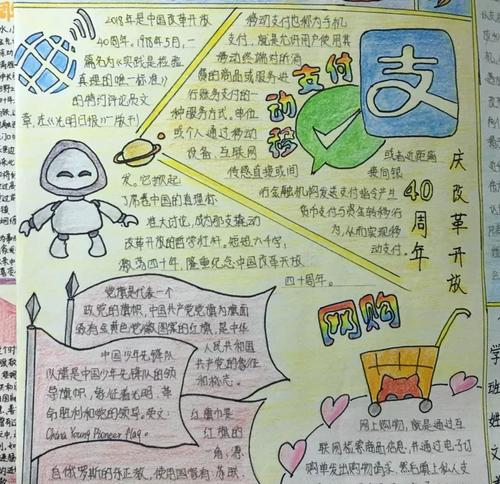 2018年是中国改革开放
40周年。1978年5月,一
篇名为《实践是检验
真理的唯一标准》
的特约评论员文
章,在《光明日报》一版刊
发。它掀起
了席卷中国的真理标
准大讨论,成为那支撬动
改革开放的哲学杠杆。短短六千字,
激荡四十年,隆重纪念中国改革开放
四十周年。
移动支付也称为手机
支付,就是允许用户使用其
移动终端对所消
费的商品或服务进
行账务支付的一
种服务方式。单位
或个人通过移动
设备、互联网
传感直接或间
或者近距离
接向银
行金融机构发送支付指令产生
货币支付与资金转移行
为,从而实现移
动支付。
移动支付
支
庆改革开放
40周年
党旗是代表一个
政党的旗帜,中国共产党党旗为旗面
缀有金黄色党徽图案的红旗,是中华
人民共和国
共产党的象征
和标志。
中国少年先锋队
队旗是中国少年先锋队的领
导旗帜,象征着光明,革
命胜利和党的领导。英文:
China Young Pioneer flag。
红旗的
一角,源
自俄罗斯的东正教,使用国有:苏联
网购
网上购物,就是通过互
联网检索商品信息,并通过电子订
购单发出购物请求,然后填上私人支
学
班
姓
文